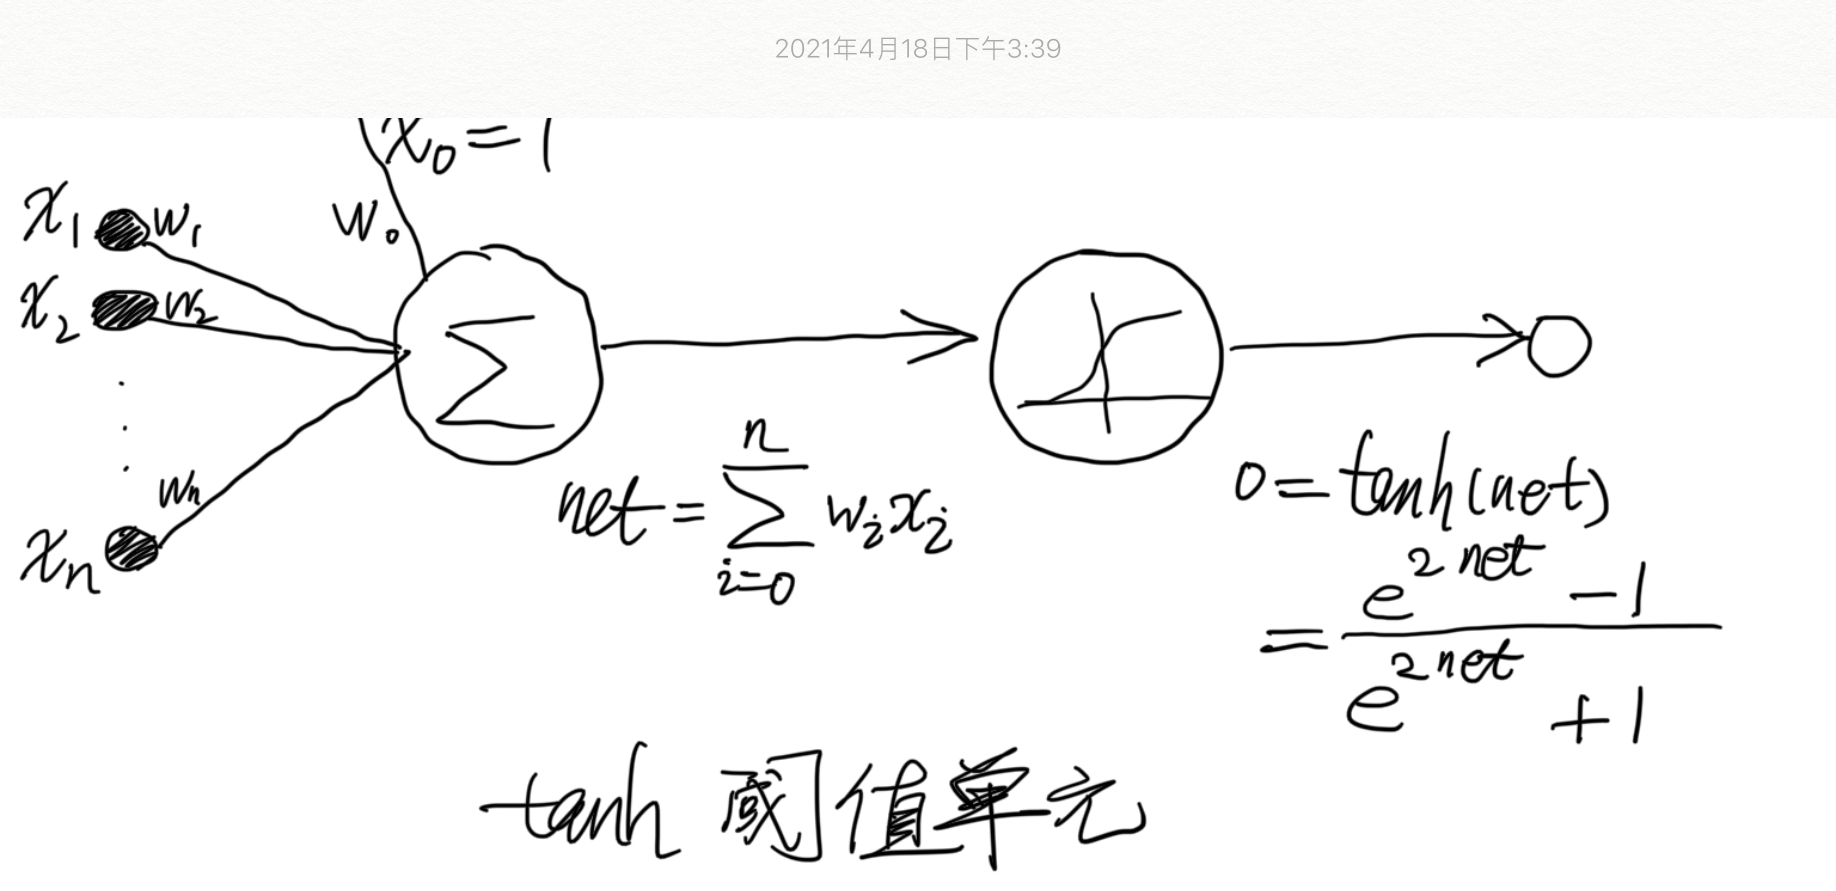 2021年4月18日下午3:39
x₀=1
x₁ w₁ w₀
x₂ w₂
Σ
wₙ
xₙ
net = ∑ᵢ₌₀ⁿ wᵢxᵢ
o = tanh(net)
= (e^(2net) - 1) / (e^(2net) + 1)
tanh 阈值单元